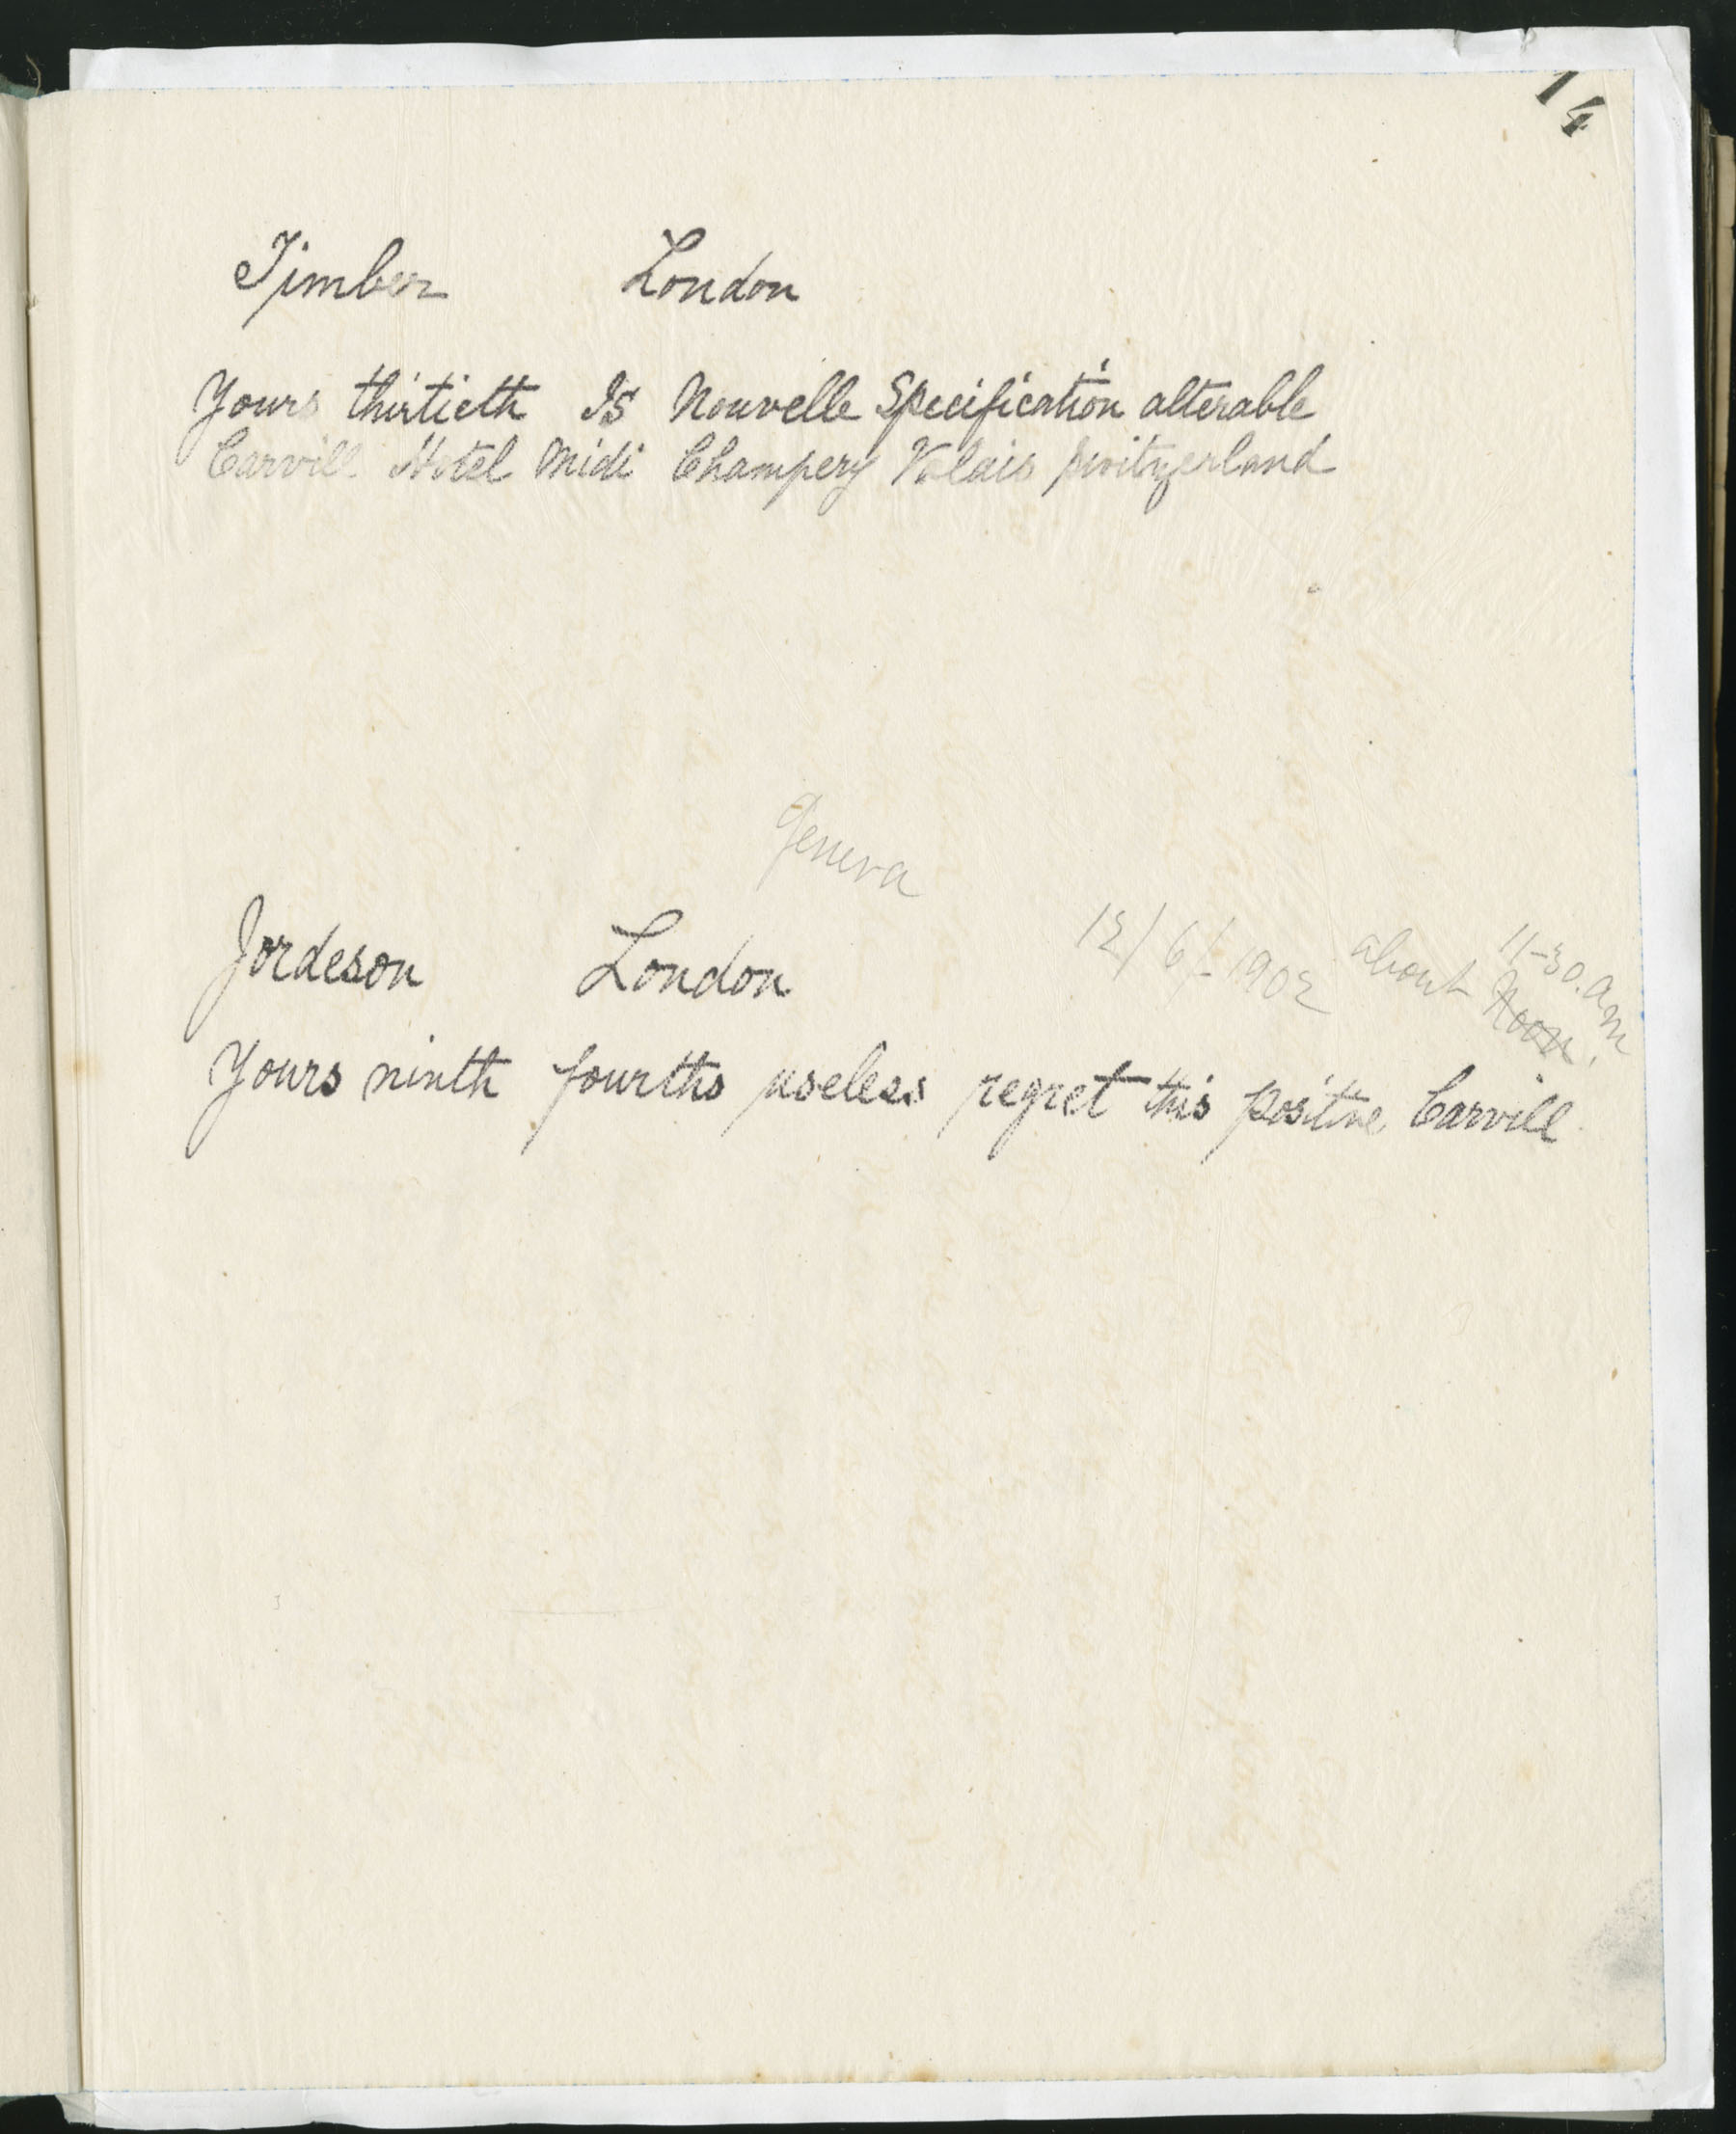 14
Timber London
Yours thirtieth Is Nouvelle Specification alterable
Carvill Hotel Midi Champery Valais Switzerland
Geneva
Jordeson London 12/6/-1902 about 11-30.am
Noon.
Yours ninth fourths useless regret this positive Carvill